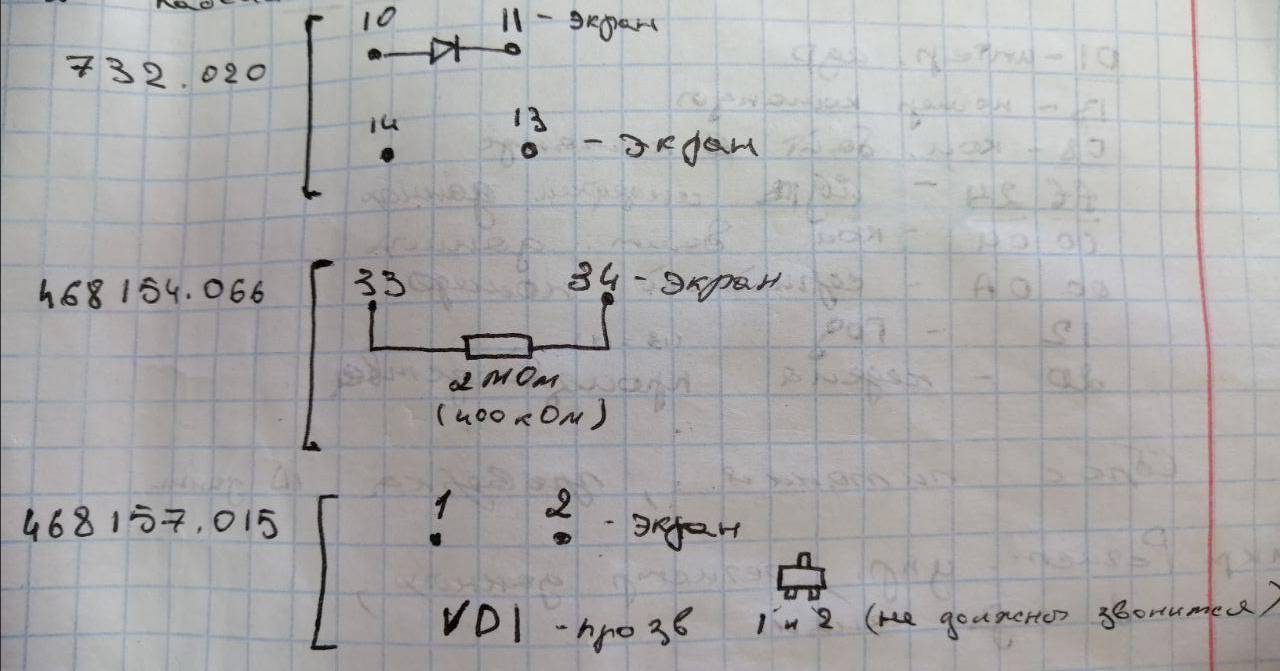 10 11 - экран
732.020
14 13 - экран
468154.066 33 34 - экран
2 МОм
(400 кОм)
468157.015 1 2 - экран
VD1 - прозв 1 и 2 (не должно звонится)